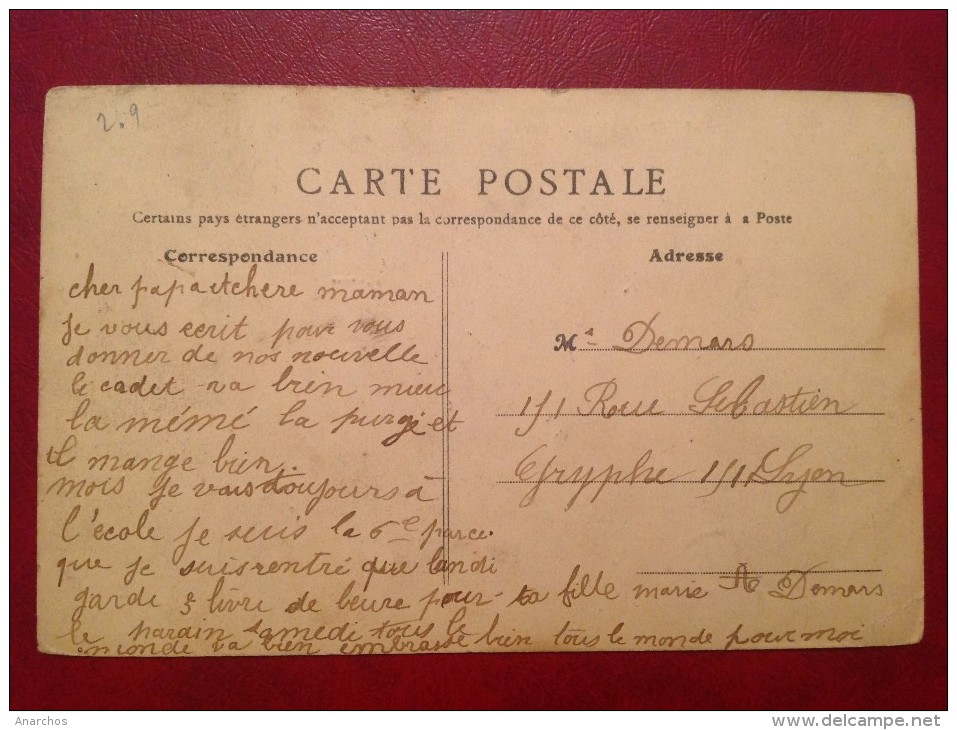 2.9
CARTE POSTALE
Certains pays étrangers n'acceptant pas la correspondance de ce côté, se renseigner à a Poste
Correspondance
cher papa et chere maman
je vous ecrit pour vous
donner de nos nouvelle
le cadet va bien mieu
la mémé la purgé et
il mange bien.
mois je vais toujours à
l'école je suis la 6e parce
que je suis rentré que lundi
garde livre de beure pour ta fille marie Demars
le samedi tous le
monde va bien embrasse bien tous le monde pour moi
Adresse
M Demars
151 Roue Sebastien
Gryphe Lyon
Anarchos
www.delcampe.net